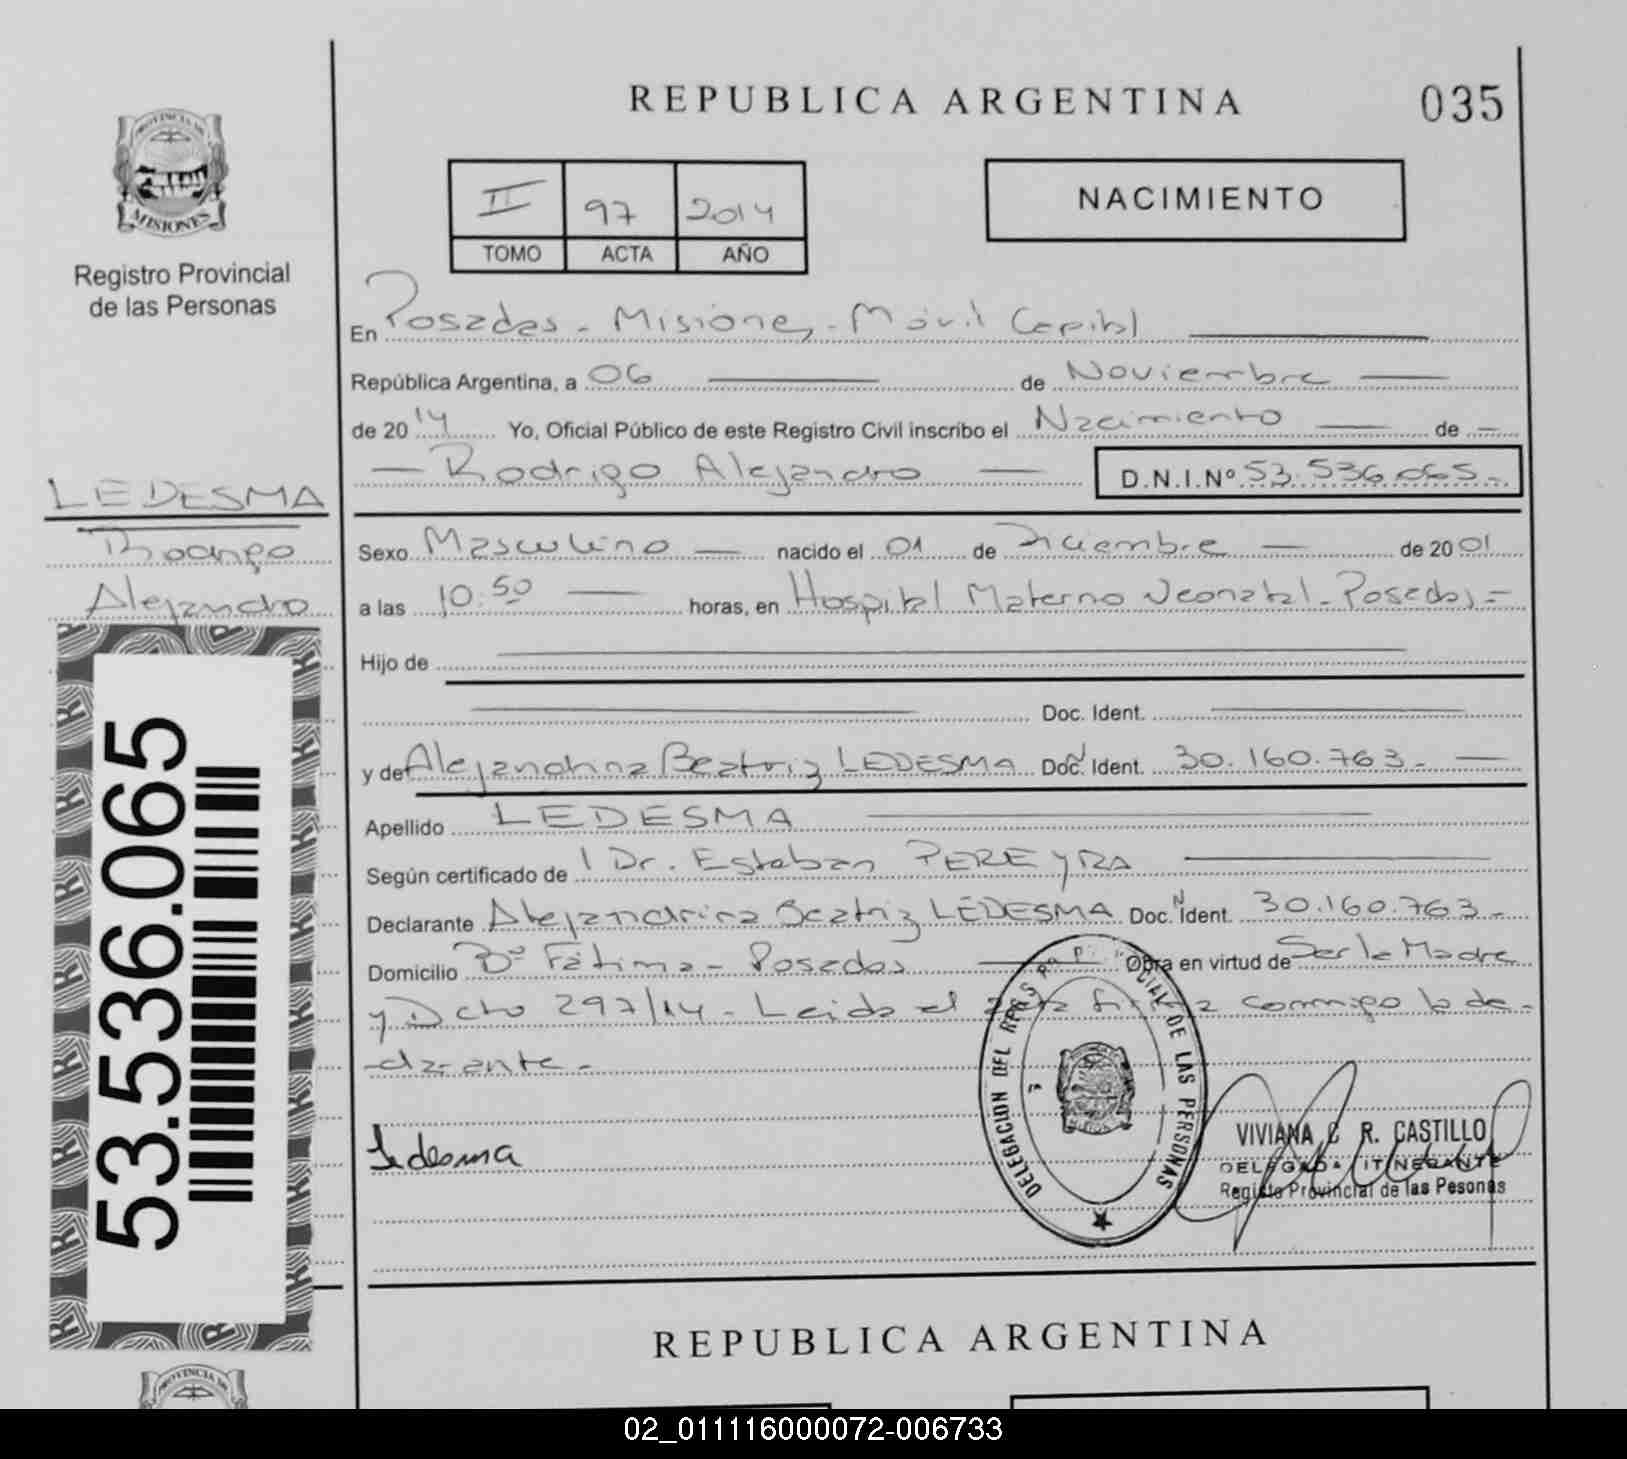 REPUBLICA ARGENTINA
035
PROVINCIA DE
MISIONES
Registro Provincial
de las Personas
II 97 2014
TOMO ACTA AÑO
NACIMIENTO
En Posadas - Misiones - Móvil Capital
República Argentina, a 06 de Noviembre
de 2014 Yo, Oficial Público de este Registro Civil inscribo el Nacimiento de
Rodrigo Alejandro D.N.I.Nº 53.536.065.-
LEDESMA
Rodrigo
Alejandro
Sexo Masculino nacido el 01 de Diciembre de 2001
a las 10:50 horas, en Hospital Materno Neonatal - Posadas.-
Hijo de
Doc. Ident.
y de Alejandrina Beatriz LEDESMA Doc. N Ident. 30.160.763.-
Apellido LEDESMA
Según certificado de Dr. Esteban PEREYRA
Declarante Alejandrina Beatriz LEDESMA Doc. N Ident. 30.160.763.-
Domicilio Bº Fátima - Posadas Obra en virtud de Ser la Madre
y Dcto 297/14 - Leida el acta firma conmigo la de-
clarante.-
53.536.065
Ledesma
DELEGACION DEL REG. PROVINCIAL DE LAS PERSONAS
VIVIANA C R. CASTILLO
DELEGADA ITINERANTE
Registo Provincial de las Pesonas
REPUBLICA ARGENTINA
PROVINCIA DE
02_011116000072-006733